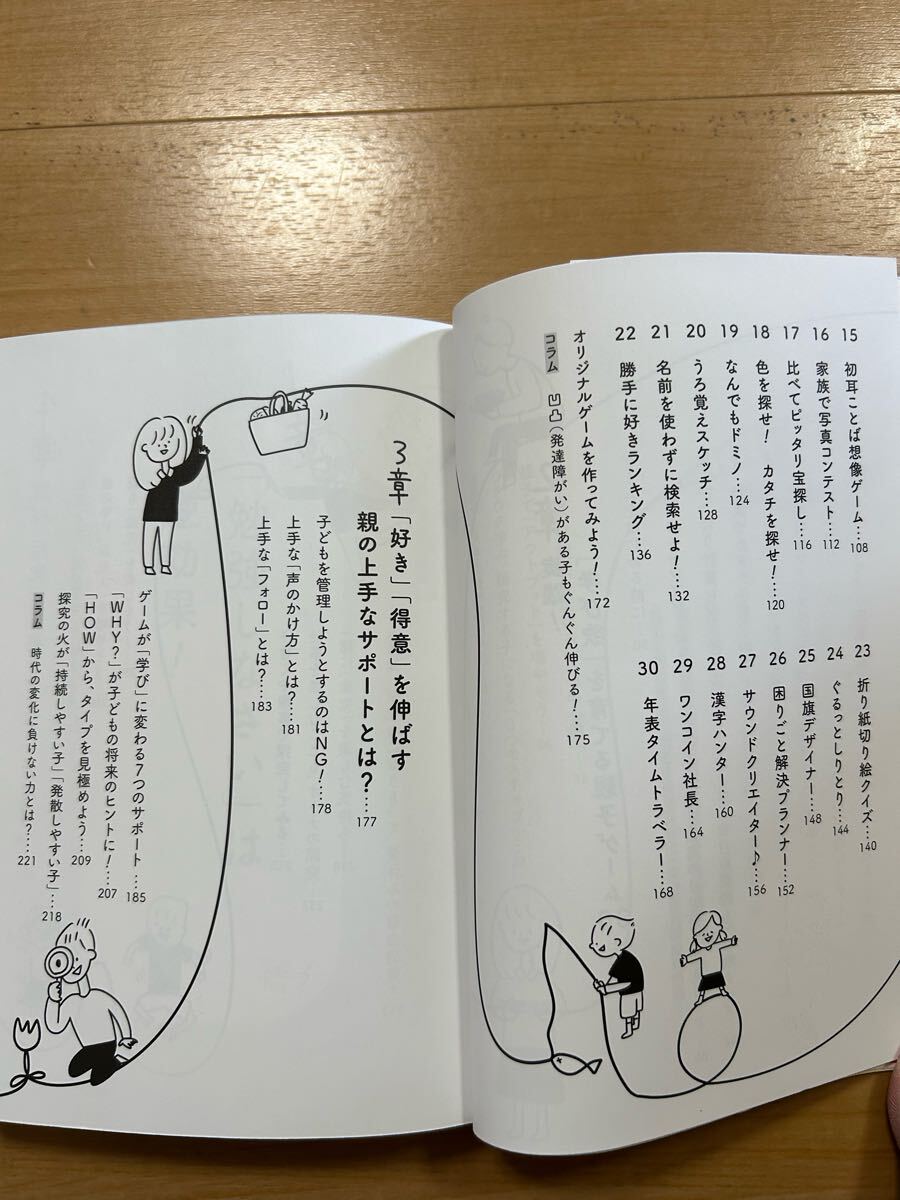 15 初耳ことば想像ゲーム……108
16 家族で写真コンテスト……112
17 比べてピッタリ宝探し……116
18 色を探せ！ カタチを探せ！……120
19 なんでもドミノ……124
20 うろ覚えスケッチ……128
21 名前を使わずに検索せよ！……132
22 勝手に好きランキング……136
23 折り紙切り絵クイズ……140
24 ぐるっとしりとり……144
25 国旗デザイナー……148
26 困りごと解決プランナー……152
27 サウンドクリエイター♪……156
28 漢字ハンター……160
29 ワンコイン社長……164
30 年表タイムトラベラー……168
オリジナルゲームを作ってみよう！……172
コラム 凹凸（発達障がい）がある子もぐんぐん伸びる！……175
3章 「好き」「得意」を伸ばす
親の上手なサポートとは？……177
子どもを管理しようとするのはNG！……178
上手な「声のかけ方」とは？……181
上手な「フォロー」とは？……183
ゲームが「学び」に変わる7つのサポート……185
「WHY？」が子どもの将来のヒントに！……207
「HOW」から、タイプを見極めよう……209
探究の火が「持続しやすい子」「発散しやすい子」……218
コラム 時代の変化に負けない力とは？……221